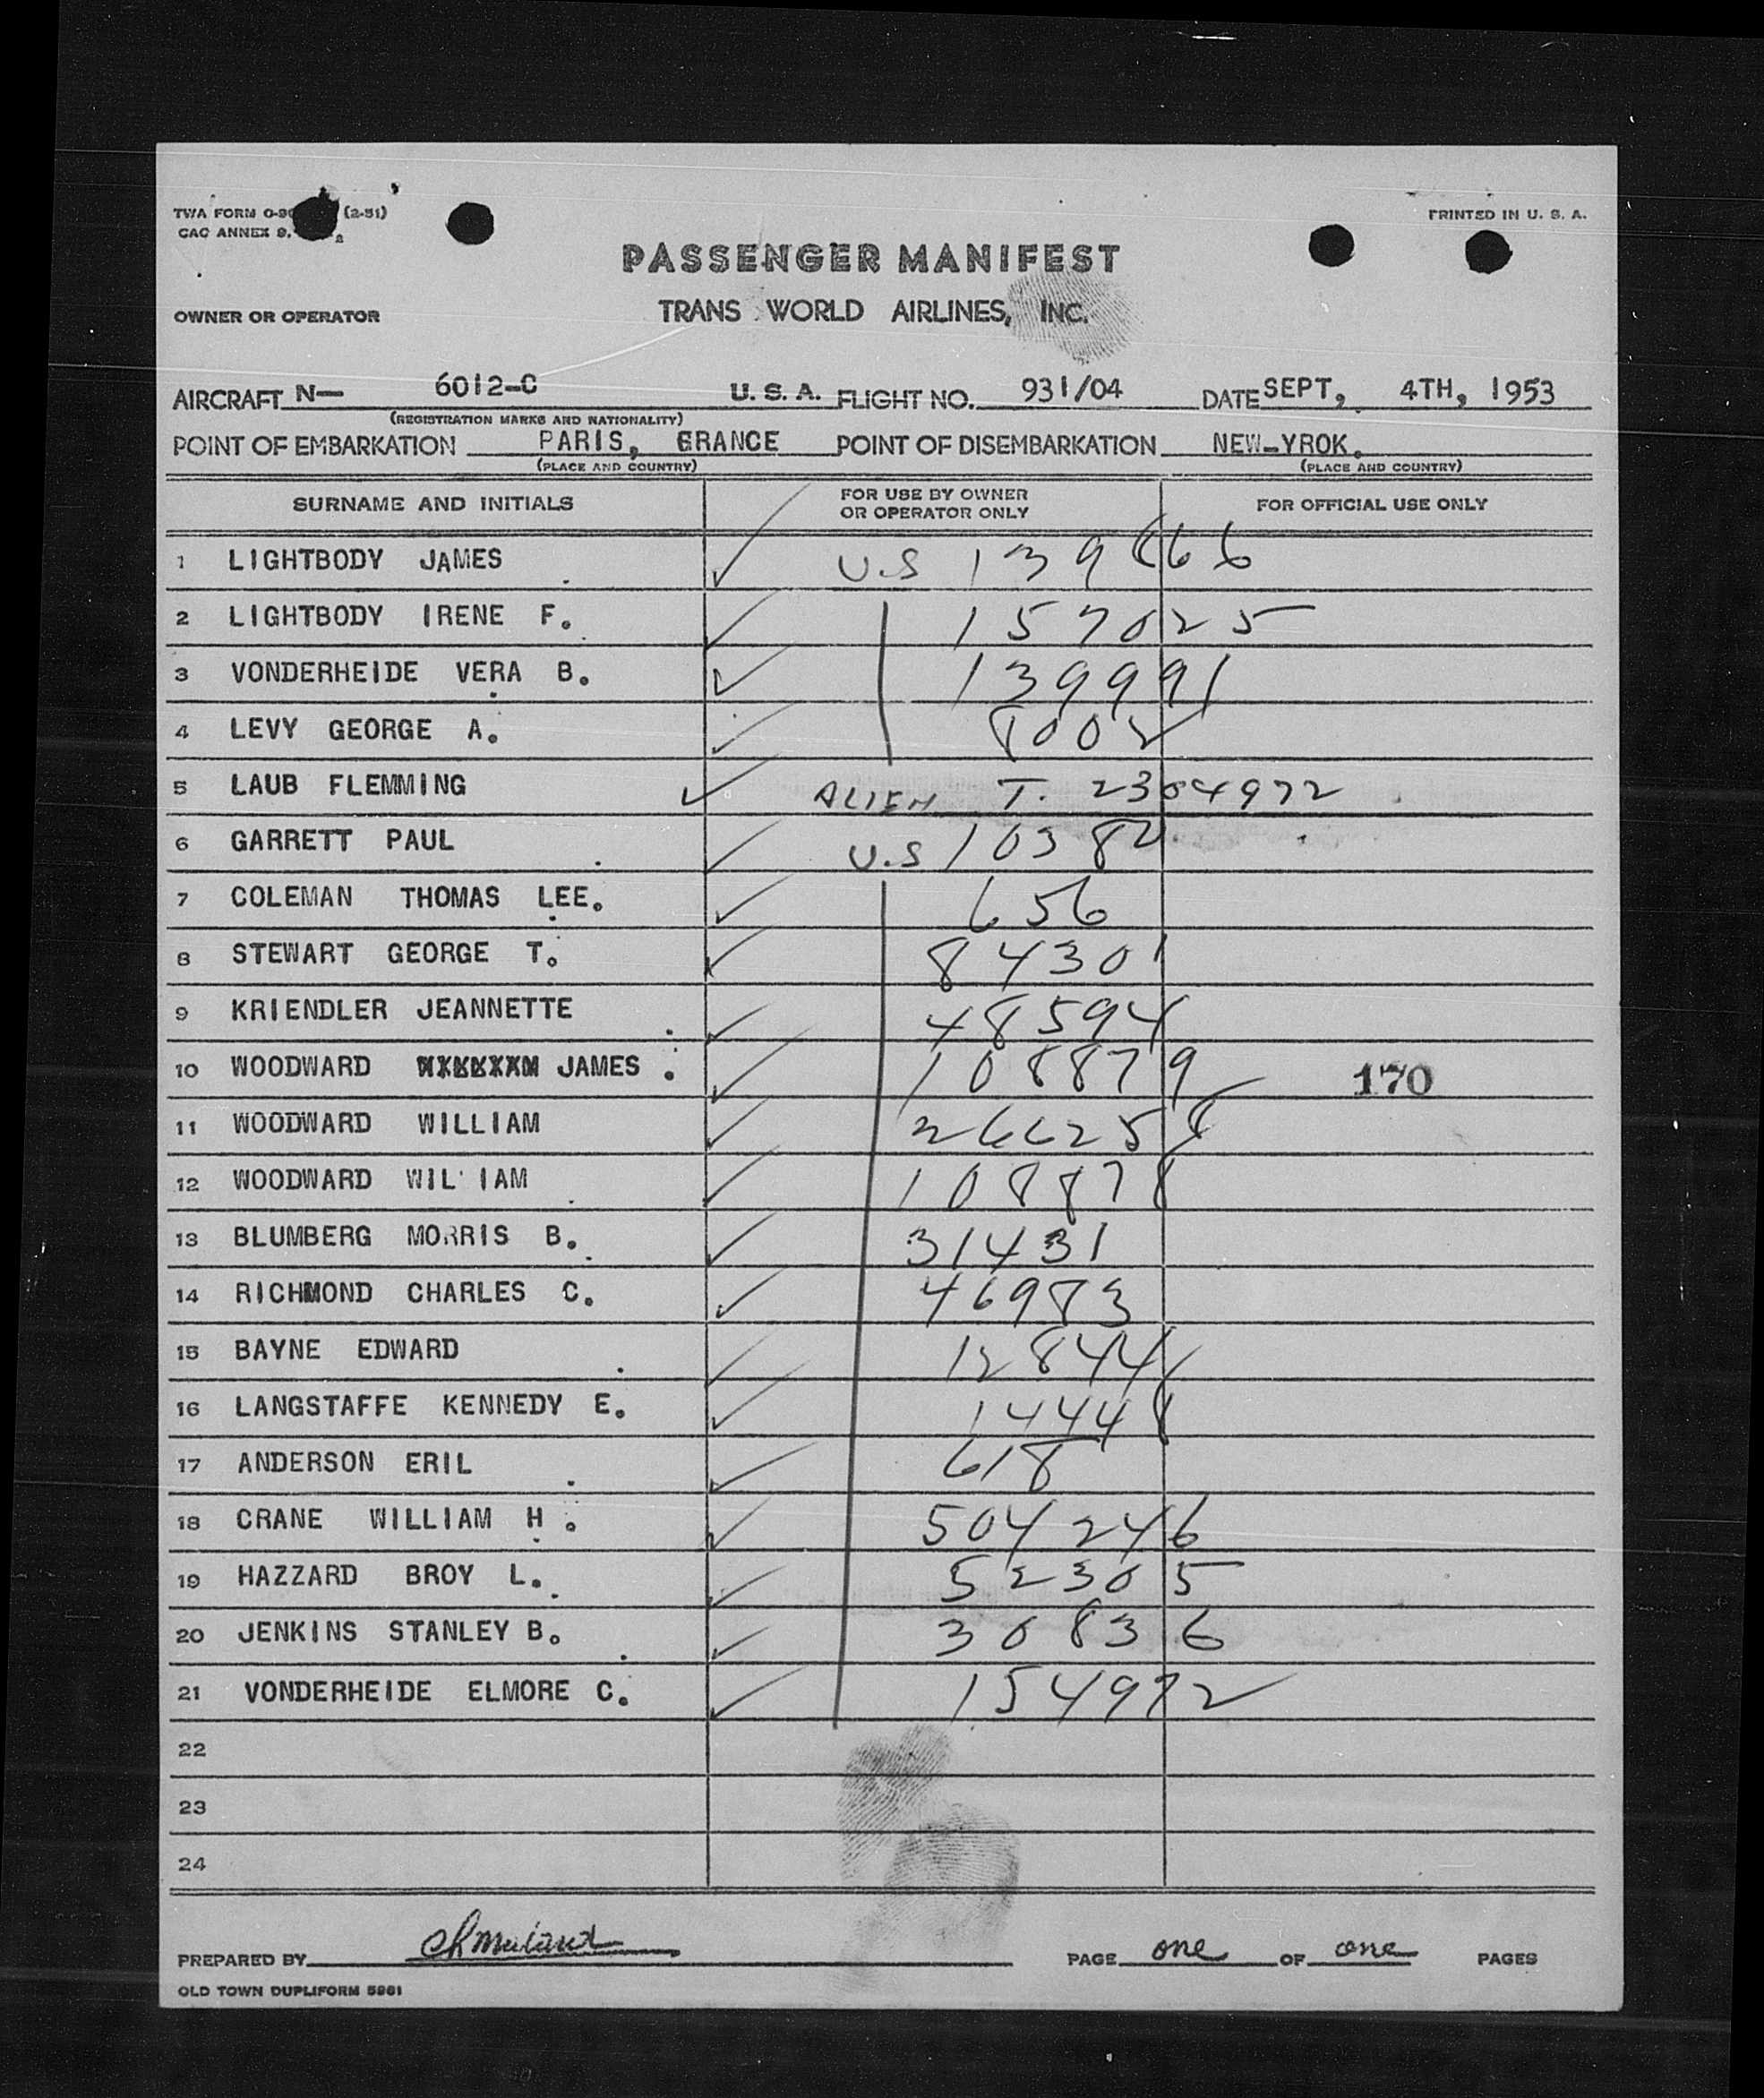 TWA FORM O-90 (2-51)
CAO ANNEX 9.
PRINTED IN U. S. A.
PASSENGER MANIFEST
OWNER OR OPERATOR TRANS WORLD AIRLINES, INC.
AIRCRAFT N— 6012-C U. S. A. FLIGHT NO. 931/04 DATE SEPT, 4TH, 1953
(REGISTRATION MARKS AND NATIONALITY)
POINT OF EMBARKATION PARIS, GRANCE POINT OF DISEMBARKATION NEW-YROK.
(PLACE AND COUNTRY) (PLACE AND COUNTRY)
SURNAME AND INITIALS FOR USE BY OWNER OR OPERATOR ONLY FOR OFFICIAL USE ONLY
1 LIGHTBODY JAMES U.S 139866
2 LIGHTBODY IRENE F. 157025
3 VONDERHEIDE VERA B. 139991
4 LEVY GEORGE A. 8002
5 LAUB FLEMMING ALIEN T. 2304972
6 GARRETT PAUL U.S 10382
7 COLEMAN THOMAS LEE. 656
8 STEWART GEORGE T. 84301
9 KRIENDLER JEANNETTE 48594
10 WOODWARD JAMES . 108879 170
11 WOODWARD WILLIAM 266258
12 WOODWARD WIL IAM 108878
13 BLUMBERG MORRIS B. 31431
14 RICHMOND CHARLES C. 46983
15 BAYNE EDWARD 12844
16 LANGSTAFFE KENNEDY E. 14448
17 ANDERSON ERIL 618
18 CRANE WILLIAM H . 504246
19 HAZZARD BROY L. 52305
20 JENKINS STANLEY B. 30836
21 VONDERHEIDE ELMORE C. 154972
22
23
24
PREPARED BY PAGE one OF one PAGES
OLD TOWN DUPLIFORM 5861